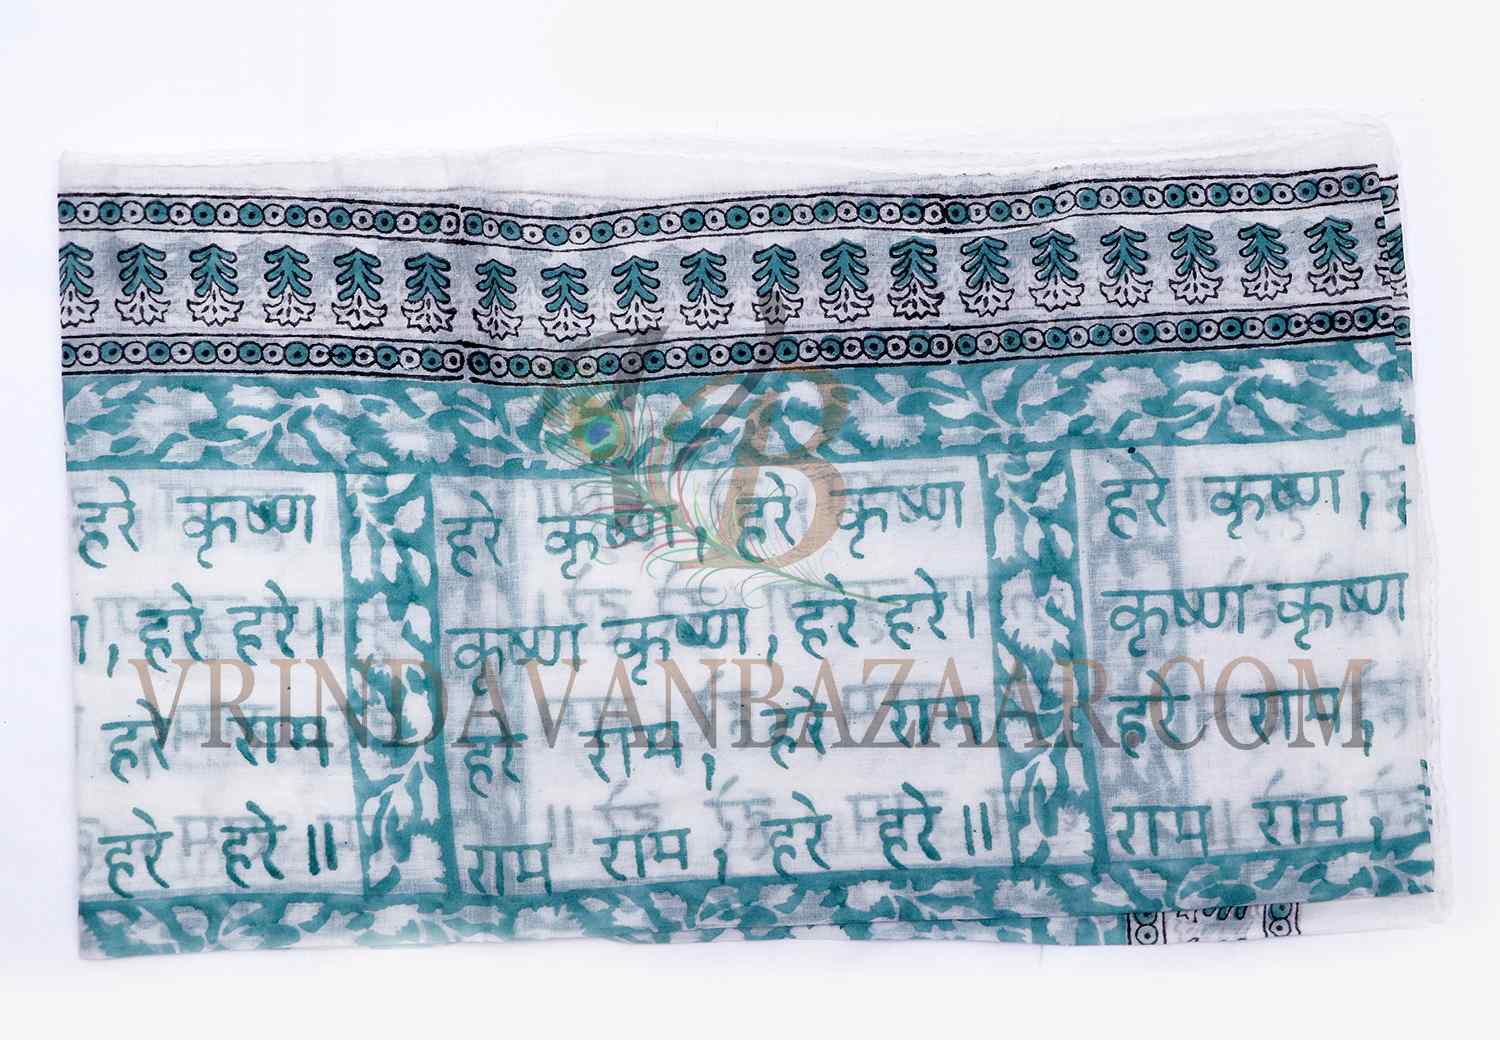 हरे कृष्ण हरे कृष्ण, हरे कृष्ण हरे कृष्ण,
, हरे हरे। कृष्ण कृष्ण, हरे हरे। कृष्ण कृष्ण
VRINDAVANBAZAAR.COM
हरे राम हरे राम, हरे राम हरे राम,
हरे हरे॥ राम राम, हरे हरे॥ राम राम,